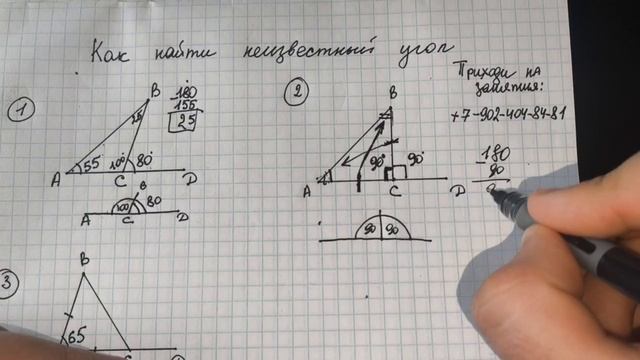 Как найти неизвестный угол
Приходи на
занятия:
+7-902-404-84-81
1
B
180
- 155
25
25
55 100° 80°
A C D
B
100 80
A C D
2
B
90° 90°
A C D
90 90
- 180
90
3
B
65